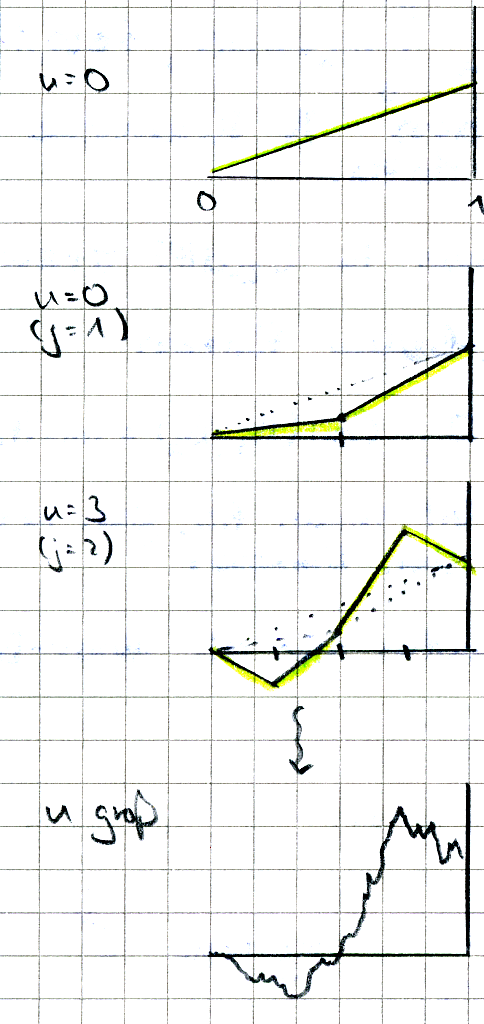 n=0
0 1
n=0
(j=1)
n=3
(j=2)
n groß